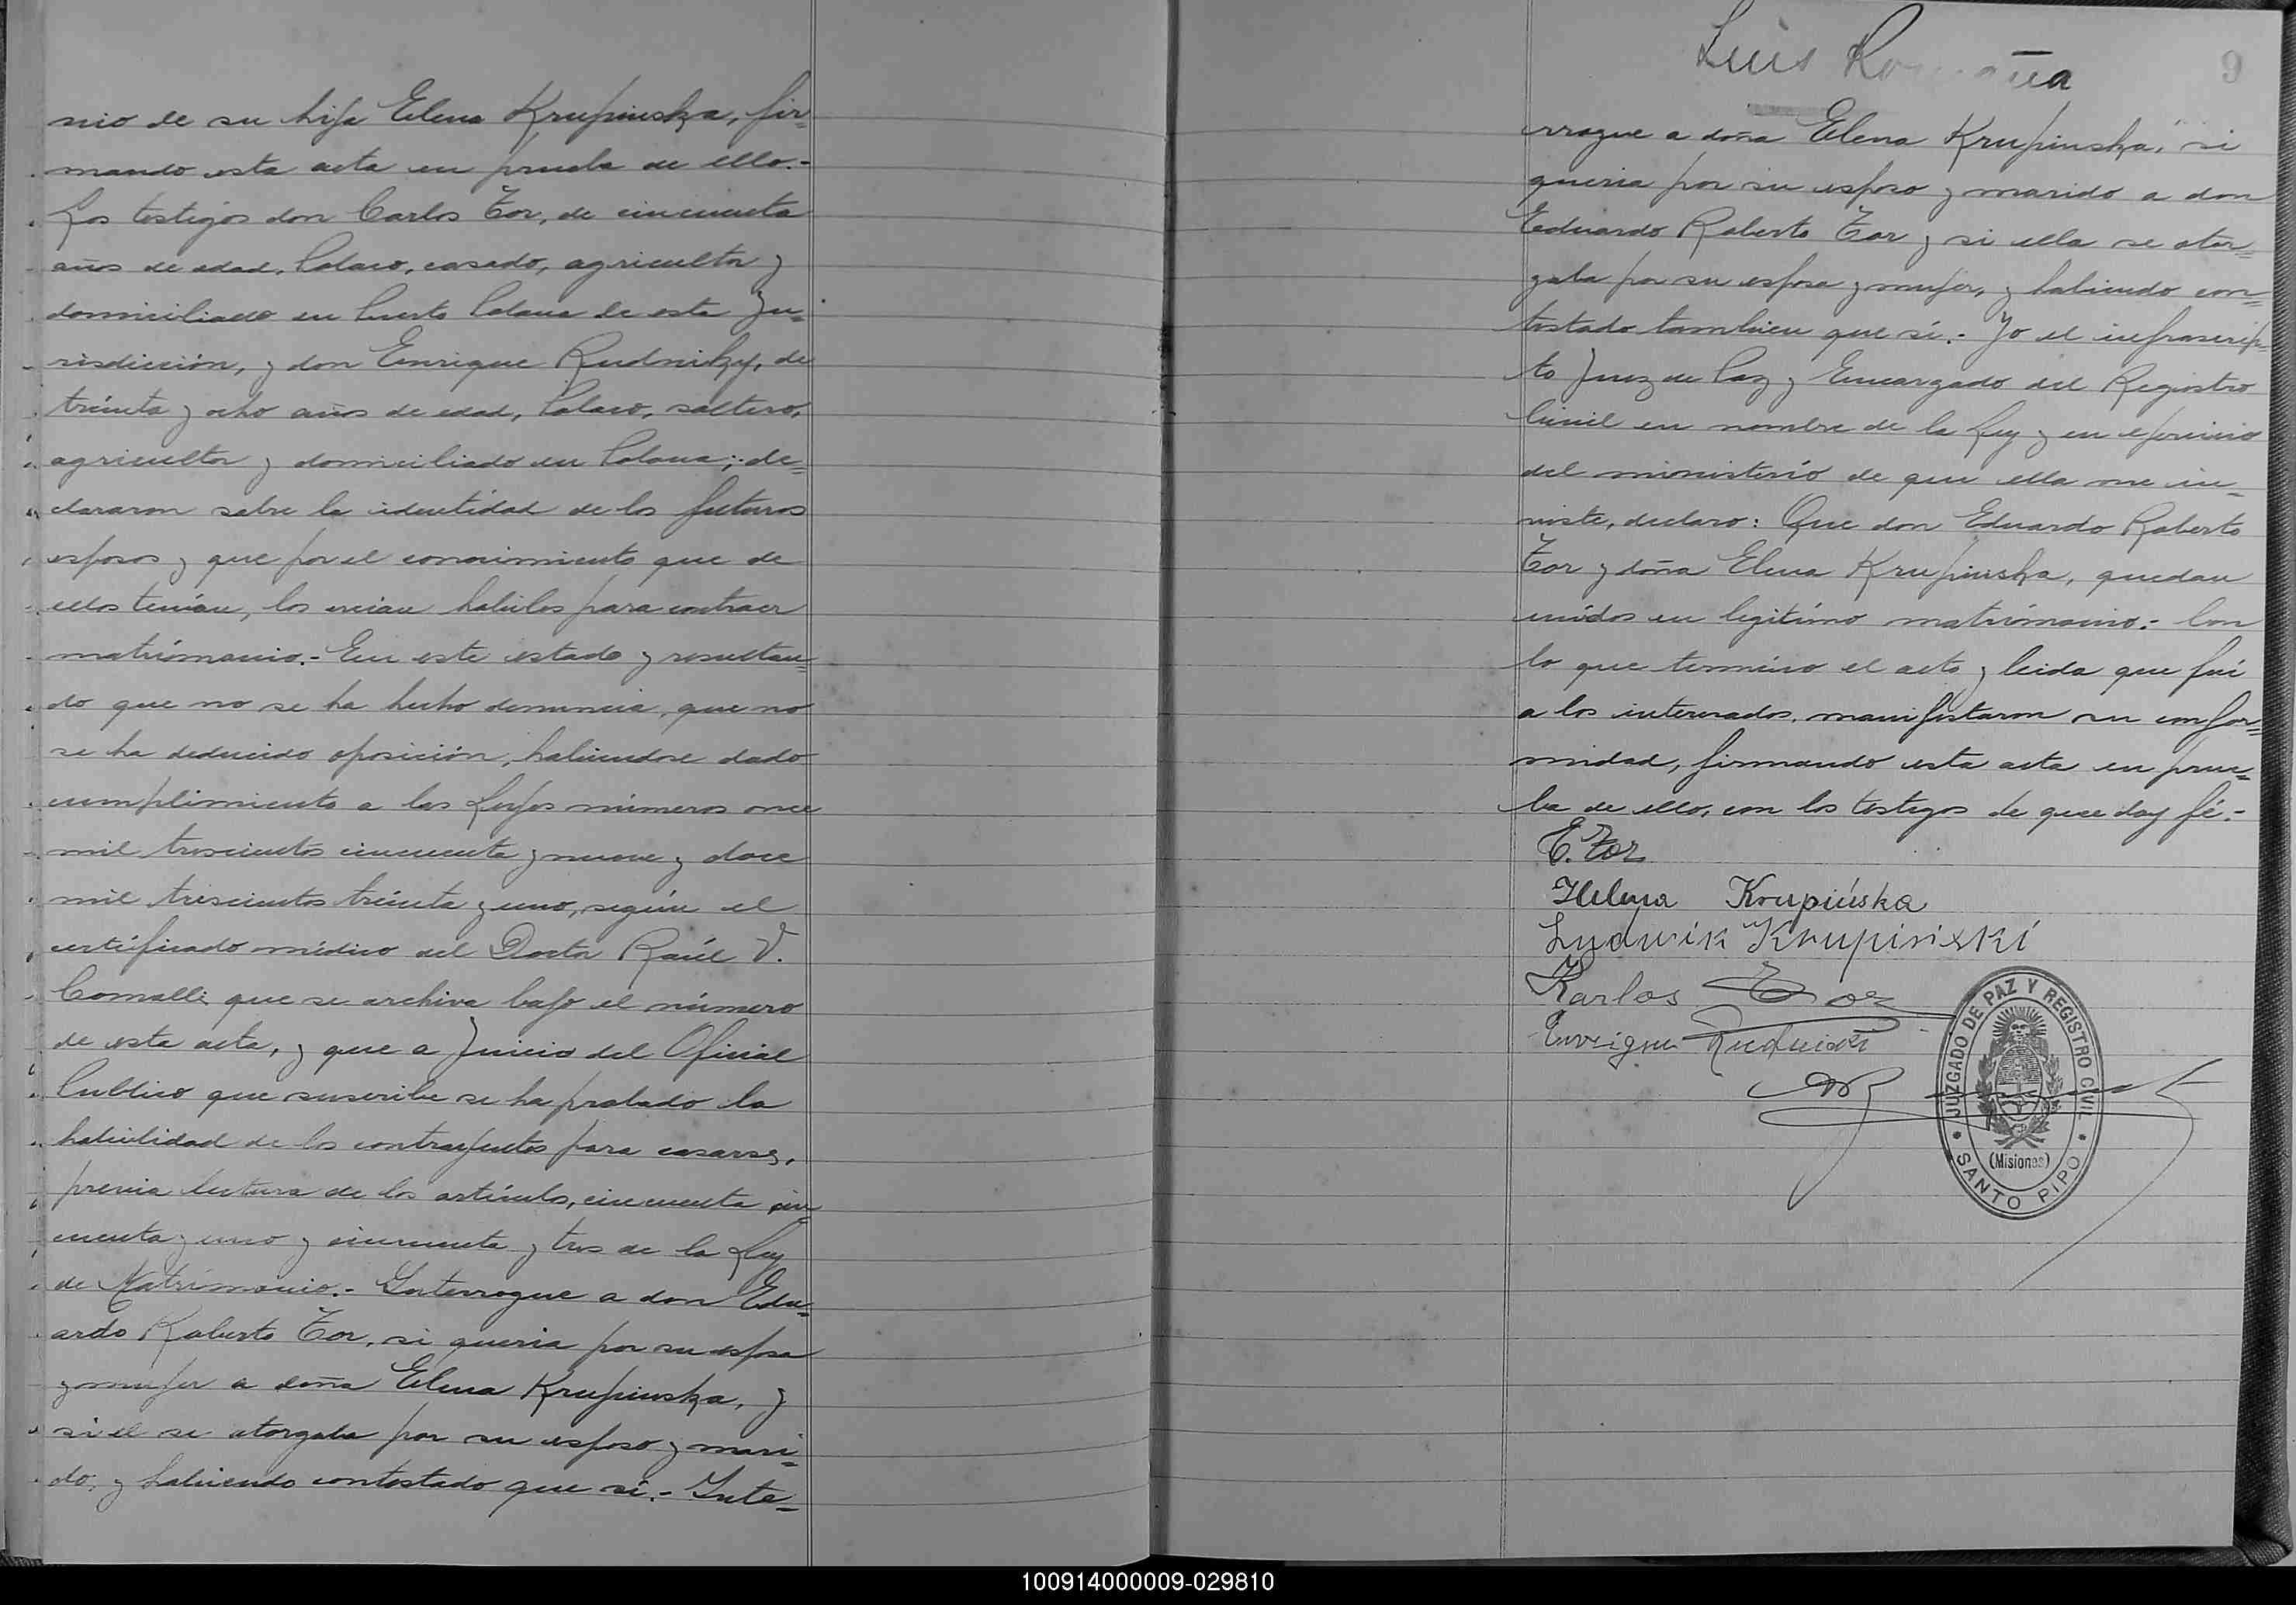 nio de su hija Elena Krupinska, fir=
mando esta acta en prueba de ello.-
Los testigos don Carlos Tor, de cincuenta
años de edad, Polaco, casado, agricultor y
domiciliado en Puerto Polana de esta Ju=
risdicción, y don Enrique Rudnikzy, de
treinta y ocho años de edad, Polaco, soltero,
agricultor y domiciliado en Polana; de=
clararon sobre la identidad de los futuros
esposos y que por el conocimiento que de
ellos tenían, los creian habiles para contraer
matrimonio.- En este estado y resultan=
do que no se ha hecho denuncia, que no
se ha deducido oposición, habiendose dado
cumplimiento a las Leyes números once
mil trescientos cincuenta y nueve y doce
mil trescientos treinta y uno, según el
certificado médico del Doctor Raúl V.
Comalli que se archiva bajo el número
de esta acta, y que a Juicio del Oficial
Publico que suscribe se ha probado la
habilidad de los contrayentes para casarse,
previa lectura de los artículos, cincuenta cin
cuenta y uno y cincuenta y tres de la Ley
de Matrimonio.- Interrogue a don Edu=
ardo Roberto Tor, si queria por su esposa
y mujer a doña Elena Krupinska, y
si el se otorgaba por su esposo y mari=
do, y habiendo contestado que si.- Inte=
Luis
9
rrogue a doña Elena Krupinska, si
queria por su esposo y marido a don
Eduardo Roberto Tor y si ella se otor=
gaba por su esposa y mujer, y habiendo con=
testado tambien que sí.- Yo el infrascrip=
to Juez de Paz y Encargado del Registro
Civil en nombre de la Ley y en ejercicio
del ministerio de que ella me in=
viste, declaro: Que don Eduardo Roberto
Tor y doña Elena Krupinska, quedan
unidos en legitimo matrimonio.- Con
lo que termino el acto y leida que fué
a los interesados, manifestaron su confor=
midad, firmando esta acta en prue=
ba de ello, con los testigos de que doy fé.-
E. Tor
Helena Krupińska
Ludwik Krupiński
Karlos Tor
Enrique Rudnicki
JUZGADO DE PAZ Y REGISTRO CIVIL
(Misiones)
SANTO PIPO
100914000009-029810